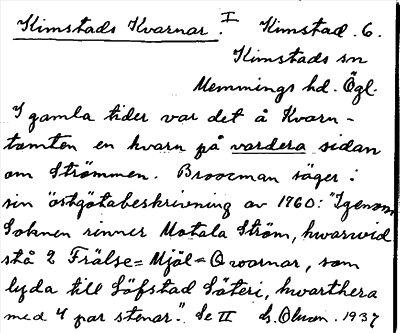 Kimstads Kvarnar. I Kimstad. 6.
Kimstads sn
Memmings hd. Ögl.
I gamla tider var det å Kvarn-
tomten en kvarn på vardera sidan
om Strömmen. Broocman säger i
sin "östgötabeskrivning av 1760: "Igenom
Soknen rinner Motala Ström, hwarwid
stå 2 Frälse= Mjöl= Qwarnar, som
lyda till Löfstad Säteri, hwarthera
med 4 par stenar." Se II G. Olson. 1937